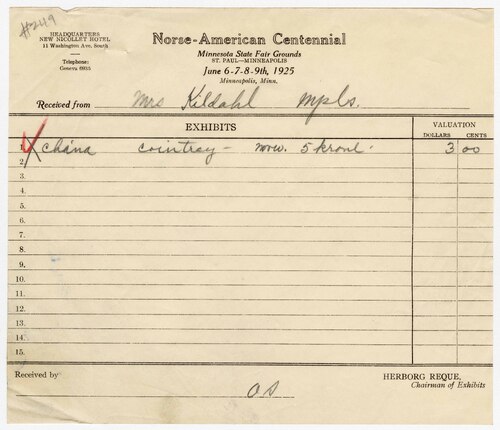 #249
HEADQUARTERS
NEW NICOLLET HOTEL
11 Washington Ave. South
Telephone:
Geneva 6935
Norse-American Centennial
Minnesota State Fair Grounds
ST. PAUL—MINNEAPOLIS
June 6-7-8-9th, 1925
Minneapolis, Minn.
Received from Mrs Kildahl Mpls.
EXHIBITS
VALUATION
DOLLARS CENTS
1. chána cointray - nrw. 5 kronl. 3 00
2.
3.
4.
5.
6.
7.
8.
9.
10.
11.
12.
13.
14.
15.
Received by OS
HERBORG REQUE,
Chairman of Exhibits